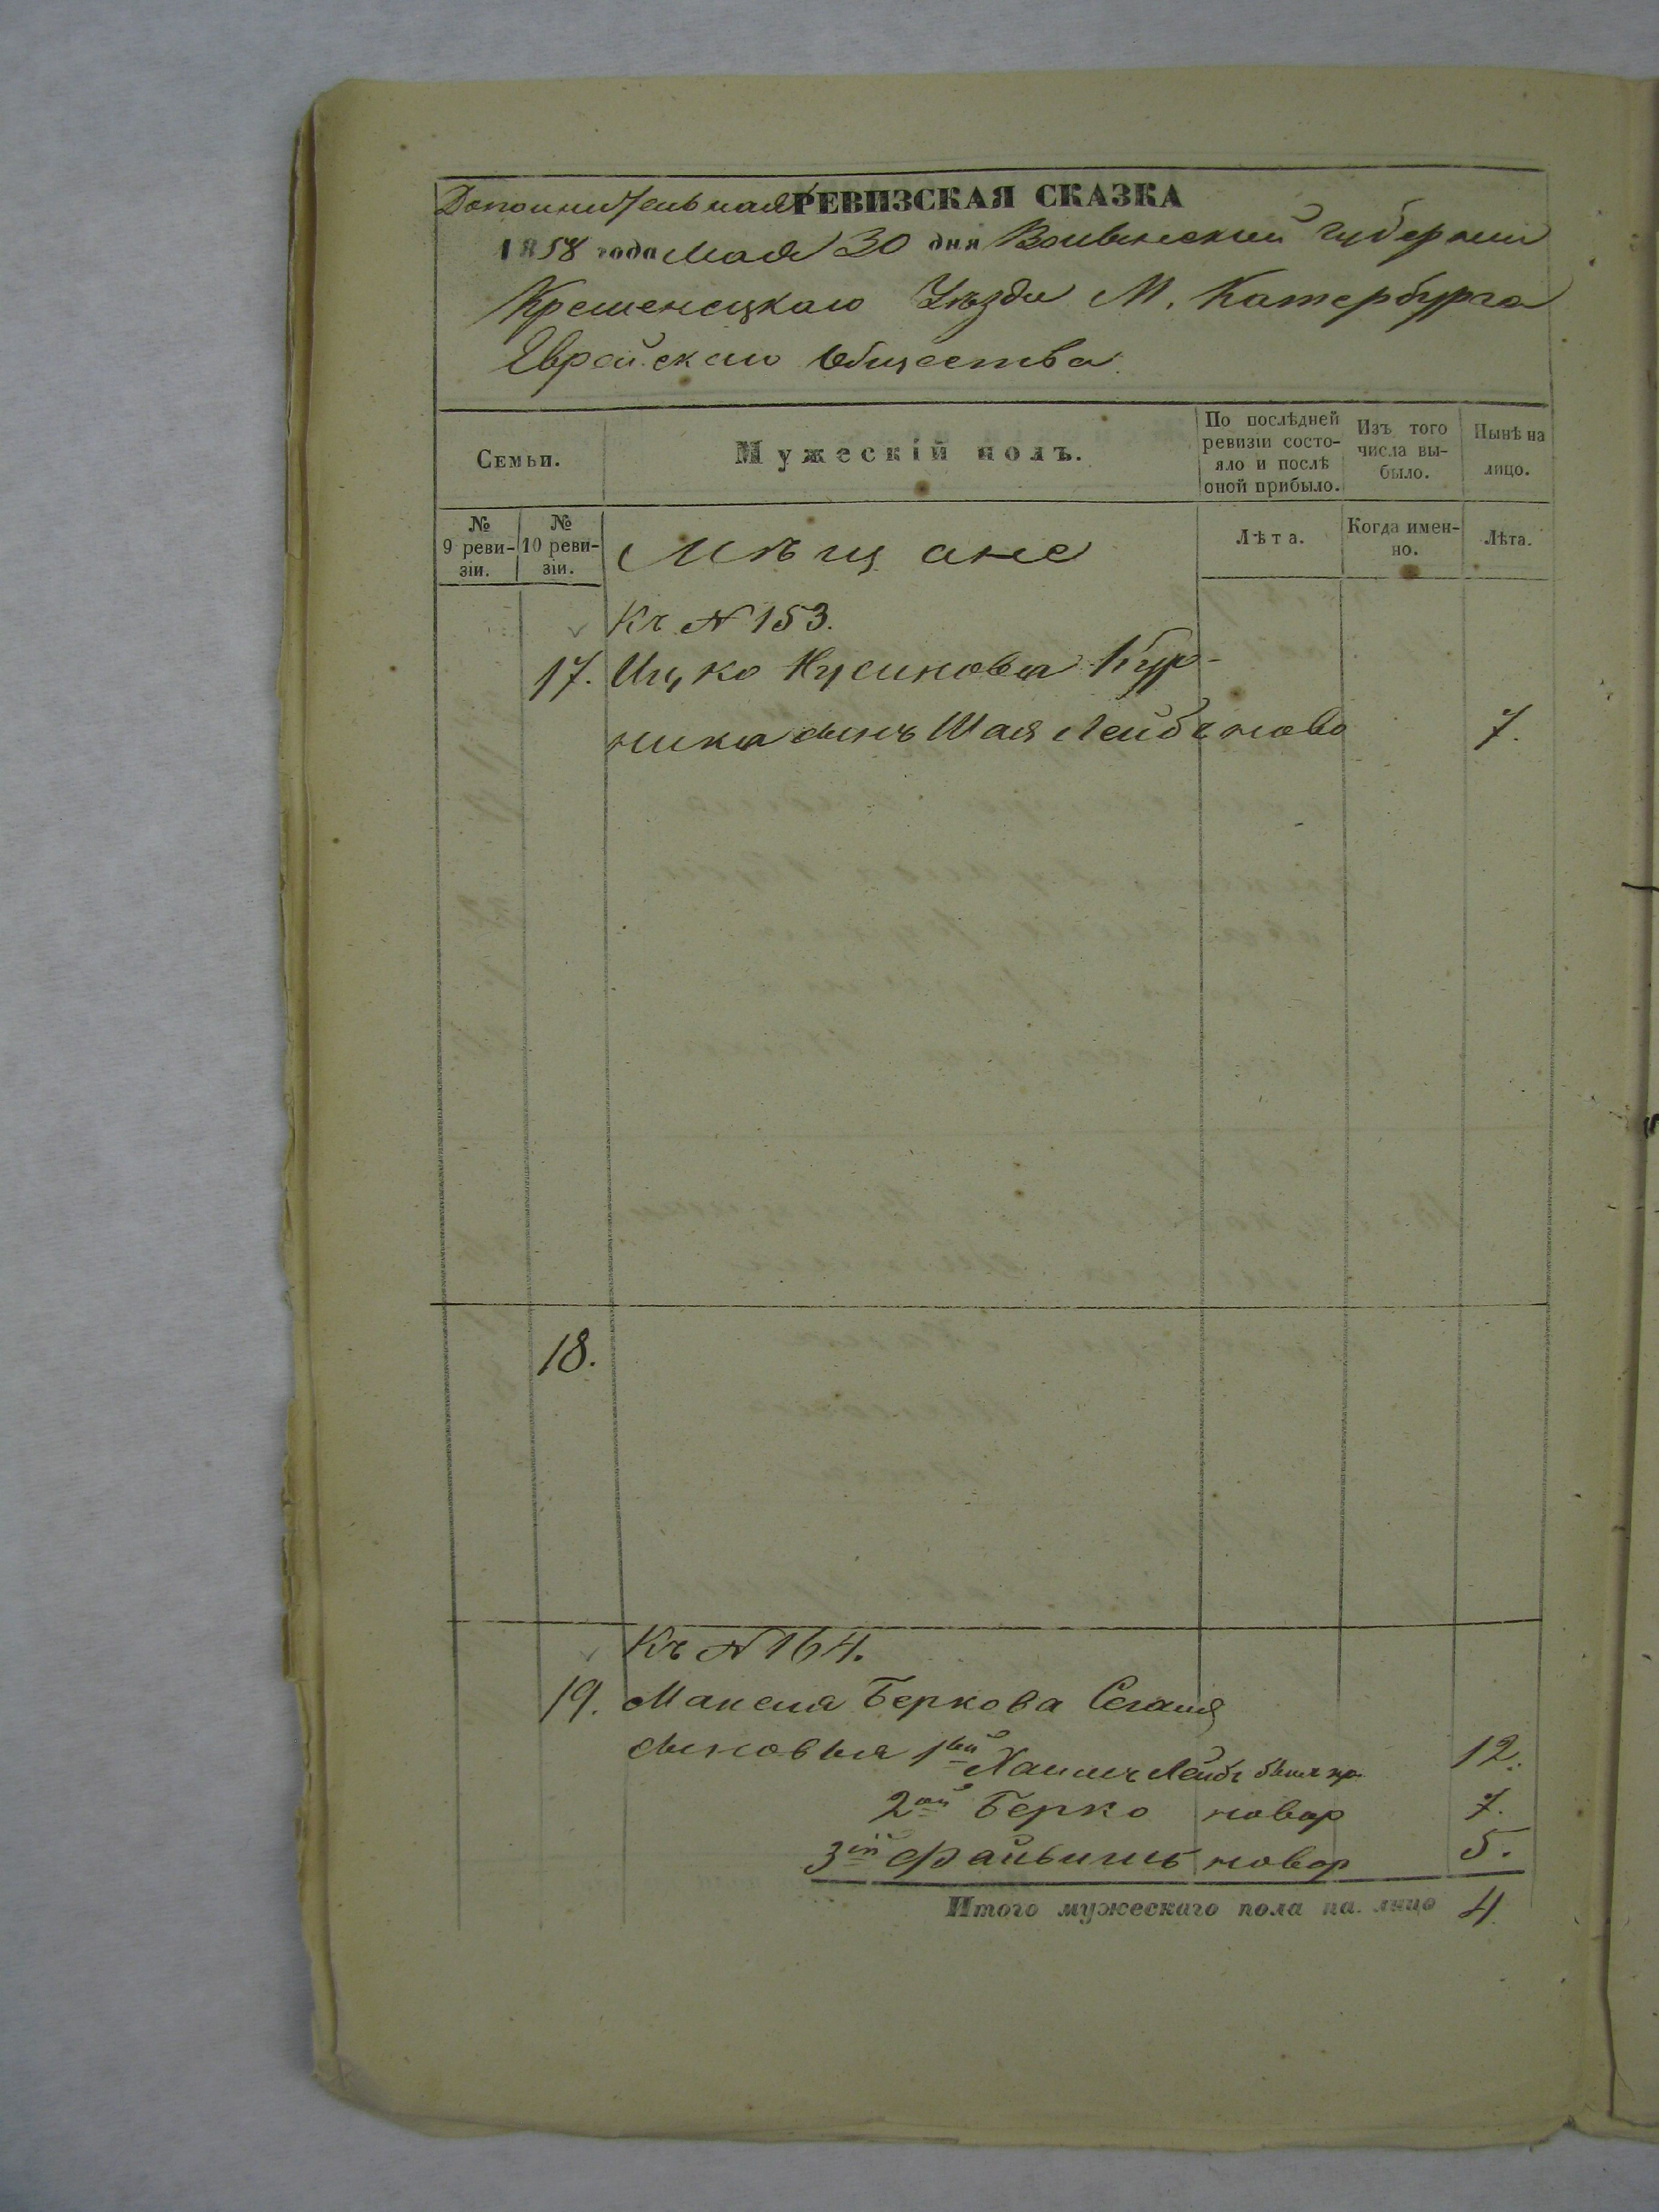 Дополнительная РЕВИЗСКАЯ СКАЗКА
1858 года Мая 30 дня Волынской Губернии
Кременецкаго Уѣзда М. Катербурга
Еврейскаго Общества
Семьи.
Мужескій полъ.
По послѣдней ревизіи состояло и послѣ оной прибыло.
Изъ того числа выбыло.
Нынѣ на лицо.
№ 9 ревизіи.
№ 10 ревизіи.
Мѣщане
Лѣта.
Когда именно.
Лѣта.
Къ N 153.
17. Ицко Нусинова Кур-
ника сынъ Шая Лейбъ ново 7.
18.
Къ N 164.
19. Манеля Беркова Сегаля
сыновья 1ый Хаимъ Лейбъ былъ пр. 12.
2ой Берко новор 7.
3ій Файвишъ новор 5.
Итого мужескаго пола на лицо 4